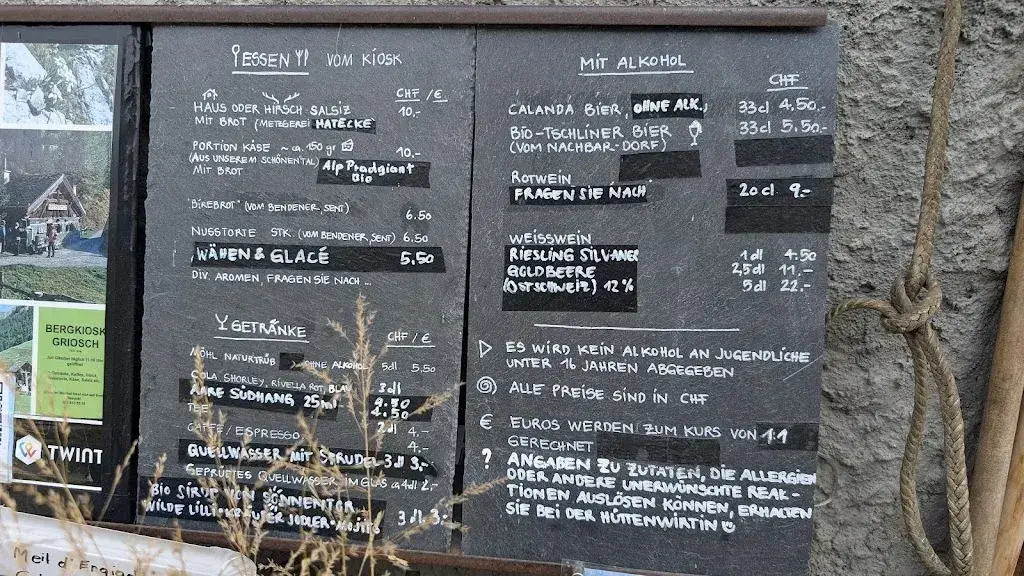 ESSEN VOM KIOSK
CHF/€
HAUS ODER HIRSCH SALSIZ 10.-
MIT BROT (METZGEREI HATECKE
PORTION KÄSE ~ca. 150 gr 10.-
(AUS UNSEREM SCHÖNENTAL) Alp Pradgiant
MIT BROT Bio
"BIREBROT" (VOM BENDENER, SENT) 6.50
NUSSTORTE STK. (VOM BENDENER, SENT) 6.50
WÄHEN & GLACÉ 5,50
DIV. AROMEN, FRAGEN SIE NACH ...
GETRÄNKE CHF/€
MÖHL NATURTRÜB OHNE ALKOHOL 5dl 5,50
COLA, SHORLEY, RIVELLA ROT, BLAU 3dl
SÜDHANG 25ml 4.50
TEE
CAFFE/ESPRESSO 2dl 4.-
4.-
QUELLWASSER MIT SPRUDEL 3dl 3,-
GEPRÜFTES QUELLWASSER IM GLAS a 4dl 2,-
BIO SIRUP VON
WILDE LILLI 3dl 3.-
MIT ALKOHOL
CHF
CALANDA BIER, OHNE ALK., 33cl 4.50,-
BIO-TSCHLINER BIER 33cl 5.50.-
(VOM NACHBAR-DORF)
ROTWEIN
FRAGEN SIE NACH 20cl 9.-
WEISSWEIN
RIESLING SILVANER 1dl 4.50
GOLDBEERE 2,5dl 11.-
(OSTSCHWEIZ) 12% 5dl 22.-
ES WIRD KEIN ALKOHOL AN JUGENDLICHE
UNTER 16 JAHREN ABGEGEBEN
ALLE PREISE SIND IN CHF
€ EUROS WERDEN ZUM KURS VON 1:1
GERECHNET
? ANGABEN ZU ZUTATEN, DIE ALLERGIEN
ODER ANDERE UNERWÜNSCHTE REAK-
TIONEN AUSLÖSEN KÖNNEN, ERHALTEN
SIE BEI DER HÜTTENWIRTIN
BERGKIOSK
GRIOSCH
TWINT